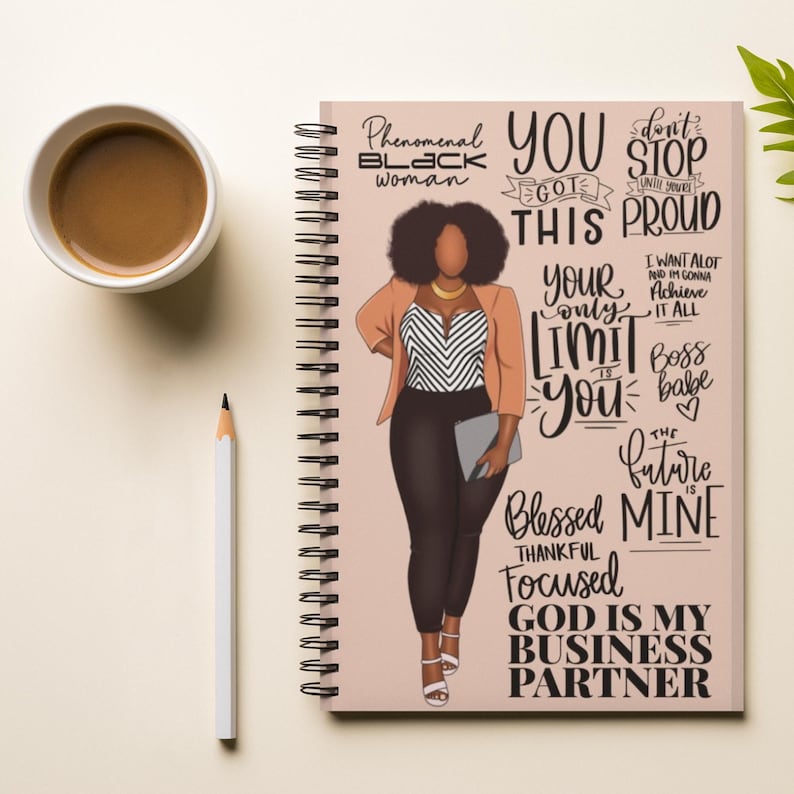 Phenomenal
BLACK
woman
YOU
GOT
THIS
don't
STOP
UNTIL YOUR
PROUD
I WANT ALOT
AND I'M GONNA
Achieve
IT ALL
YOUR
only
LIMIT
IS
YOU
Boss
babe
THE
future
IS
MINE
Blessed
THANKFUL
Focused
GOD IS MY
BUSINESS
PARTNER